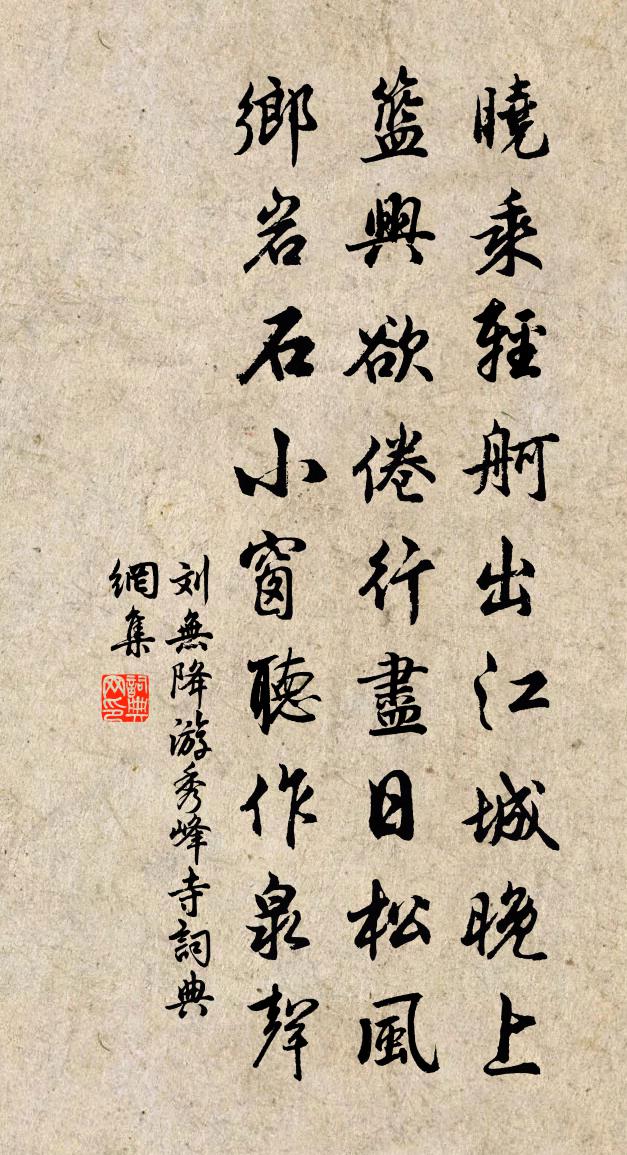 曉乘輕舸出江城晚上
籃輿欲倦行盡日松風
鄉岩石小窗聽作泉聲
刘無降游秀峰寺詞典
網集
詞典網印